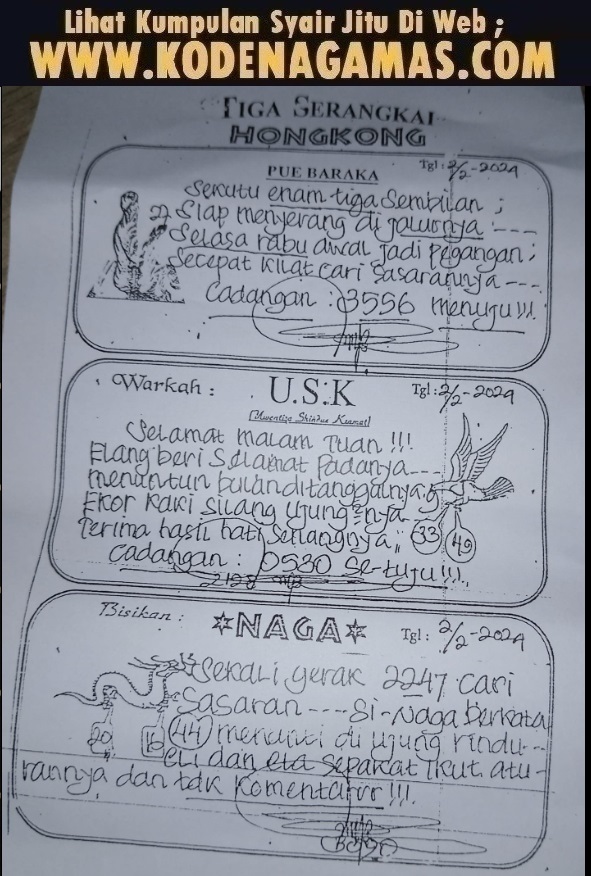 Lihat Kumpulan Syair Jitu Di Web ;
WWW.KODENAGAMAS.COM
TIGA SERANGKAI
HONGKONG
PUE BARAKA
Tgl : 2/2-2024
Sekutu enam tiga Sembilan ;
27 Siap menyerang di jalurnya ----
Selasa rabu awal jadi pegangan ;
Secepat kilat cari Sasarannya ----
Cadangan : 3556 menuju !!!
Warkah :
U.S.K
Tgl : 2/2-2024
Selamat malam Tuan !!!
Elang beri Selamat Padanya ----
menuntun bulan ditanggalnya ;
Ekor Kaki Silang Ujung²nya --
Terima hasil hati Senangnya ;;
33 49
Cadangan : 0530 Se-tuju !!!
Bisikan :
NAGA
Tgl : 2/2-2024
Sekali gerak 2247 cari
Sasaran ---- Si-Naga berkata
20 16 44 menanti di ujung rindu --
eli dan eta sepakat ikut atu-
rannya dan tdk Komentarrr !!!